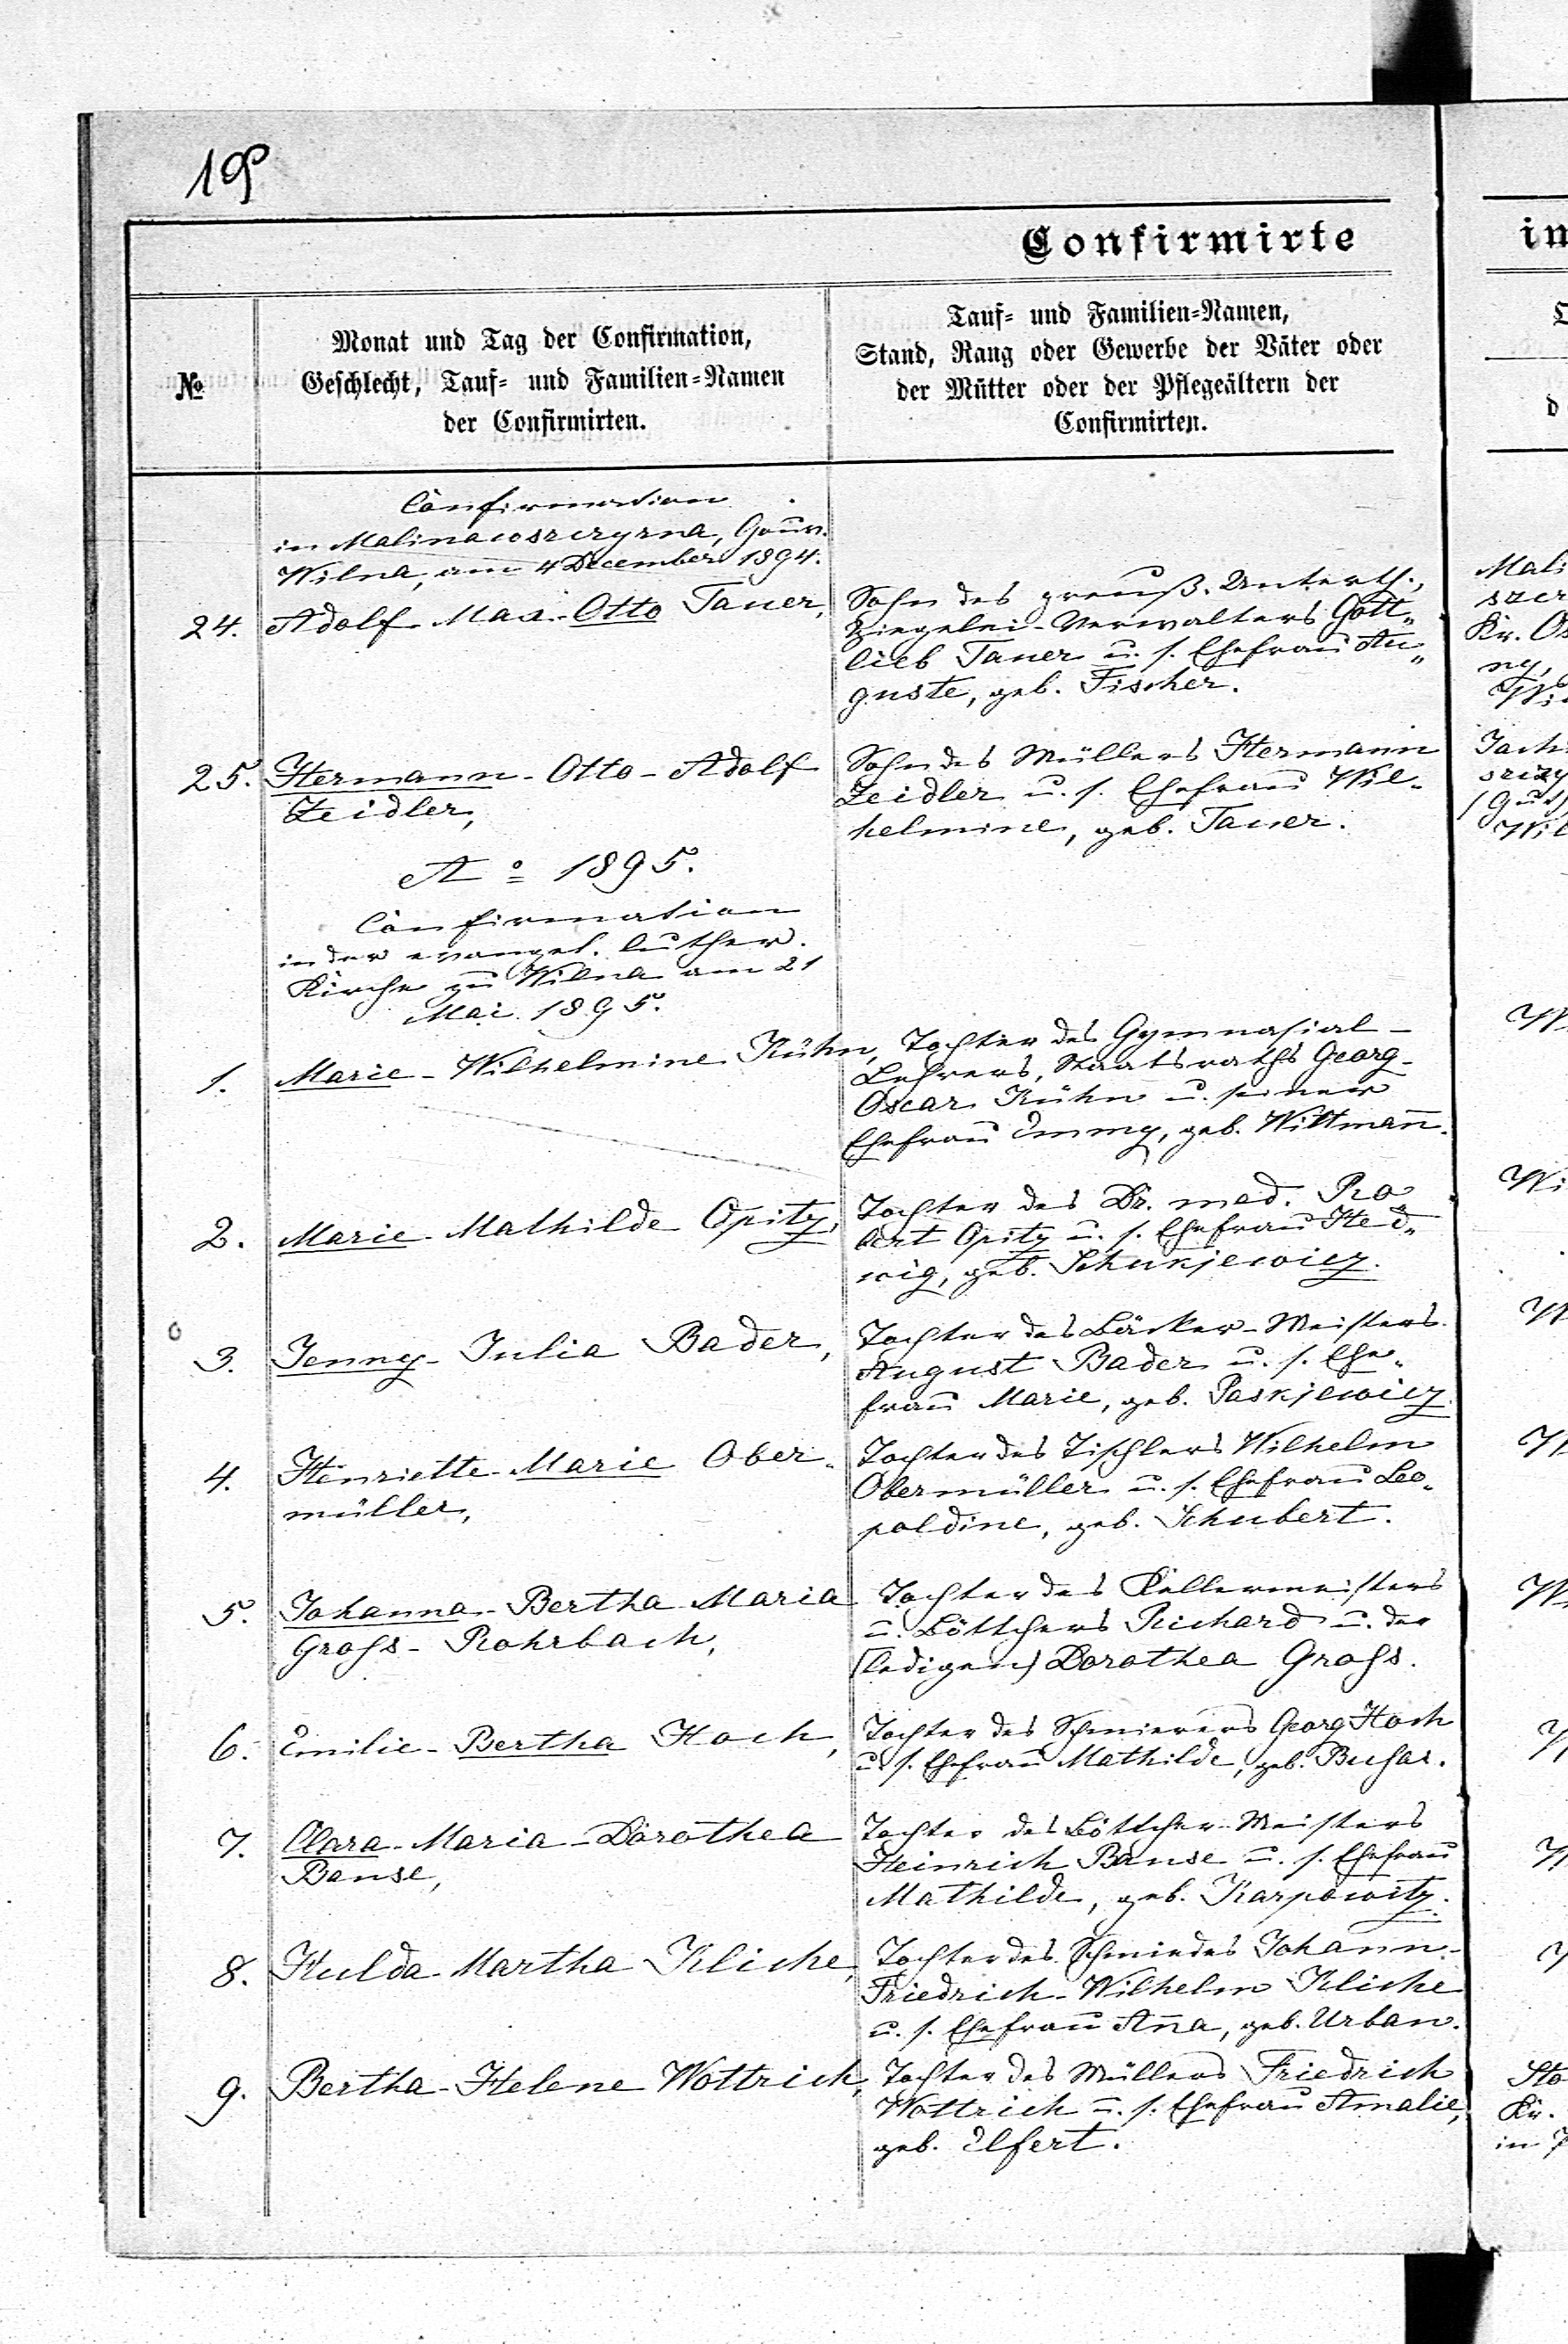 Confirmirte
in
№
Monat und Tag der Confirmation,
Geschlecht, Tauf= und Familien=Namen
der Confirmirten.
Tauf= und Familien=Namen,
Stand, Rang oder Gewerbe der Väter oder
der Mütter oder der Pflegeältern der
Confirmirten.
Confirmation
in Malinaroszczyzna, Gouv.
Wilna, am 4 December 1894.
24. Adolf-Max-Otto Tauer,
Sohn des preuß. Unterth.,
Ziegelei-Verwalters Gott„
lieb Tauer u. s. Ehefrau Au„
guste, geb. Fischer.
25. Hermann-Otto-Adolf
Zeidler,
Sohn des Müllers Hermann
Zeidler u. s. Ehefrau Wil„
helmine, geb. Tauer.
Ao 1895.
Confirmation
in der evangel. luther.
Kirche zu Wilna am 21
Mai 1895.
1. Marie-Wilhelmine Kühn,
Tochter des Gymnasial-
Lehrers, Staatsraths Georg-
Oscar Kühn u. seiner
Ehefrau Emmy, geb. Wittmañ.
2. Marie-Mathilde Opitz,
Tochter des Dr. med. Ro
bert Opitz u. s. Ehefrau Hed„
wig, geb. Schukjewicz.
3. Jenny-Julia Bader,
Tochter des Bäcker-Meisters
August Bader u. s. Ehe„
frau Marie, geb. Paskjewicz
4. Henriette-Marie Ober„
müller,
Tochter des Tischlers Wilhelm
Obermüller u. s. Ehefrau Leo„
poldine, geb. Schubert.
5. Johanna-Bertha-Maria
Groß-Rohrbach,
Tochter des Kellermeisters
u. Böttchers Richard u. der
(ledigen) Dorothea Groß.
6. Emilie-Bertha Hoch,
Tochter des Schmierers Georg Hoch
u. s. Ehefrau Mathilde, geb.
7. Clara-Maria-Dorothea
Banse,
Tochter des Böttcher-Meisters
Heinrich Banse u. s. Ehefrau
Mathilde, geb. Karpowitz.
8. Hulda-Martha Klicke,
Tochter des Schmiedes Johann-
Friedrich-Wilhelm Klicke
u. s. Ehefrau Aña, geb. Urban.
9. Bertha-Helene Wottrich,
Tochter des Müllers Friedrich
Wottrich u. s. Ehefrau Amalie,
geb. Elfert.